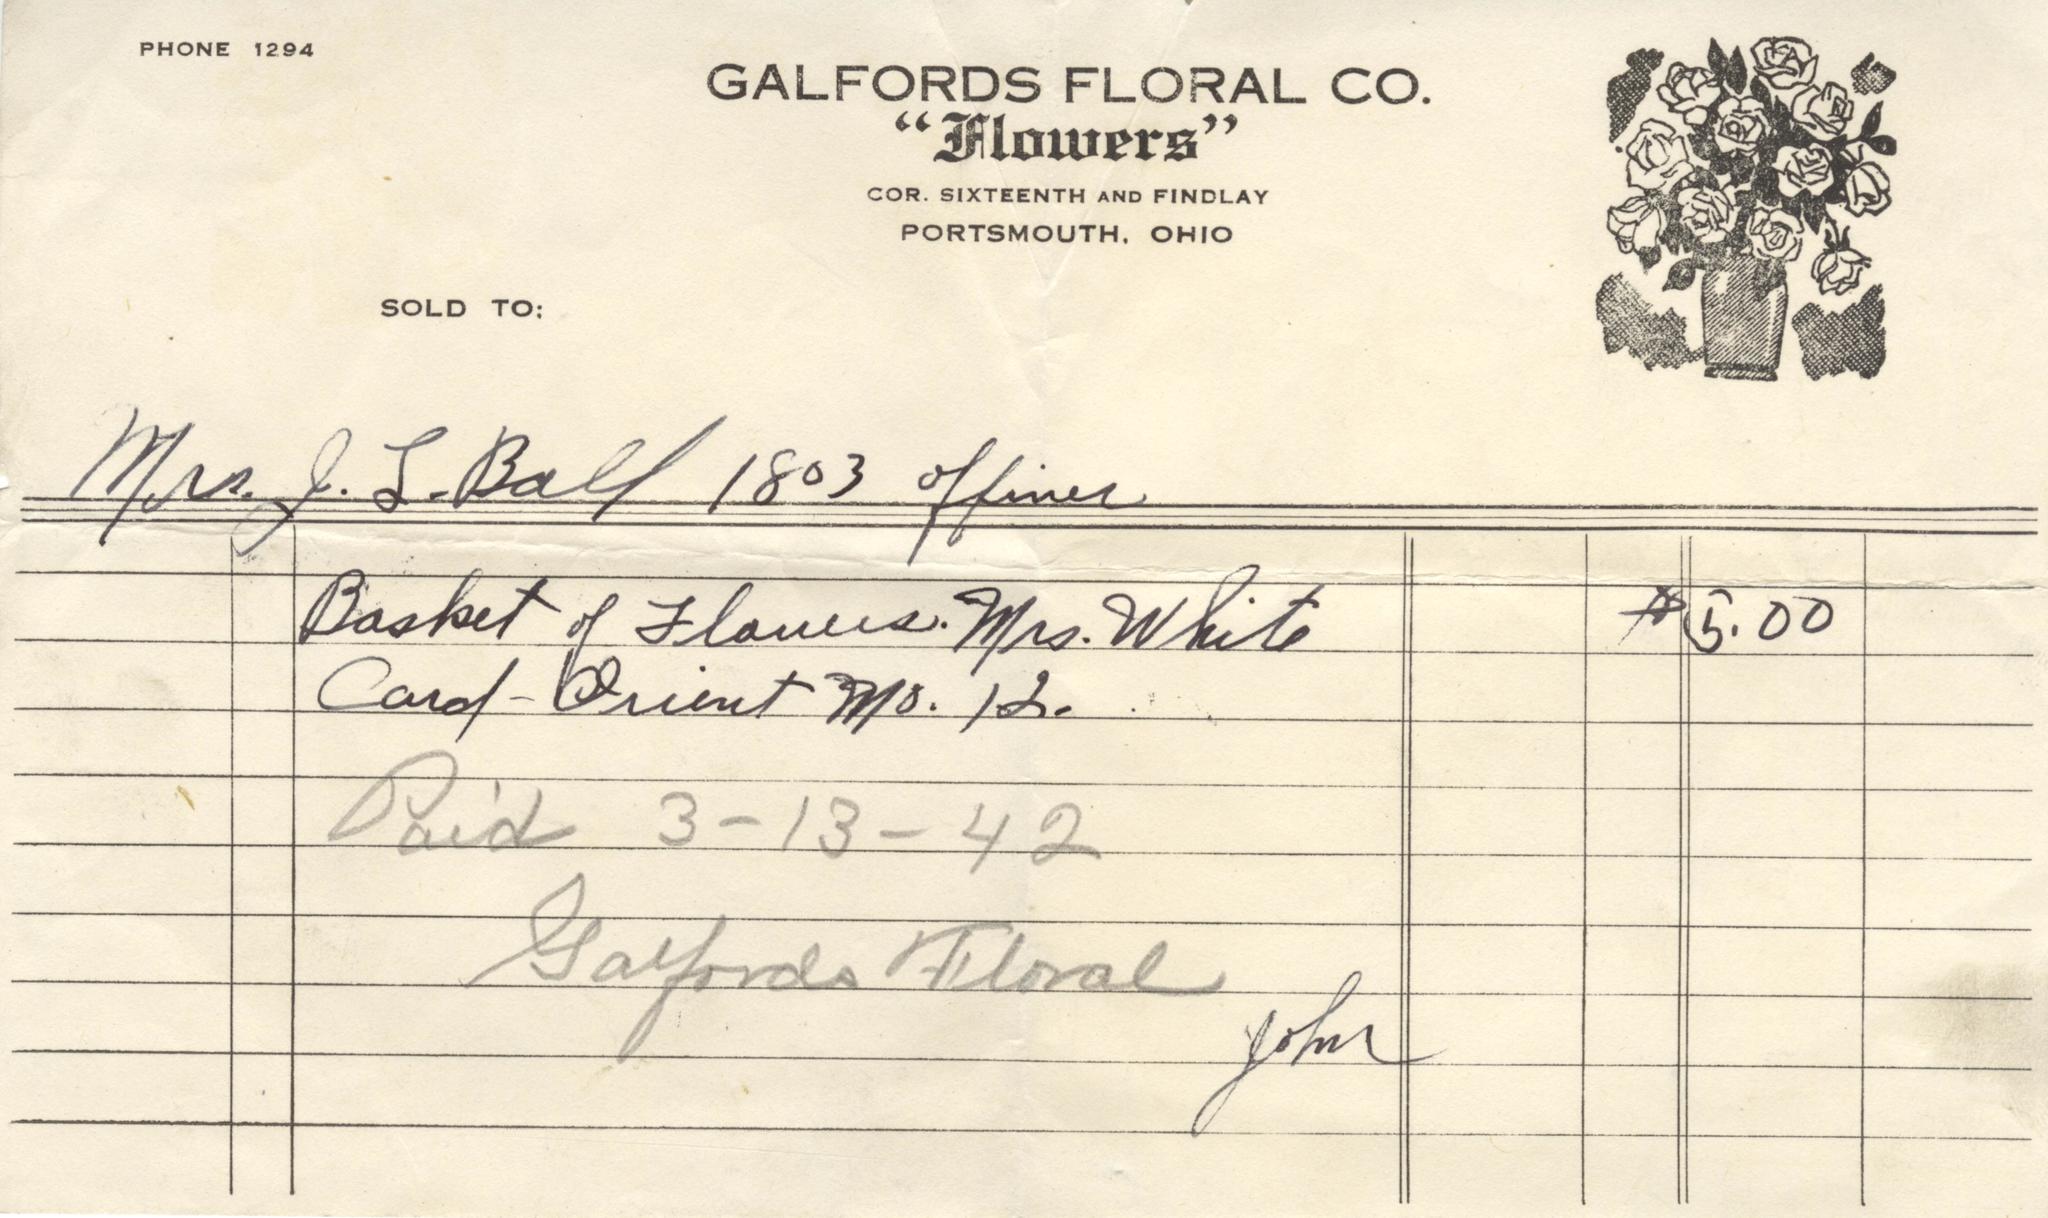 PHONE 1294
GALFORDS FLORAL CO.
"Flowers"
COR. SIXTEENTH AND FINDLAY
PORTSMOUTH, OHIO
SOLD TO:
Mrs. J. L. Ball 1803
Basket of Flowers. Mrs. White $5.00
Card - Orient No. 12.
Paid 3-13-42
Galfords Floral
John